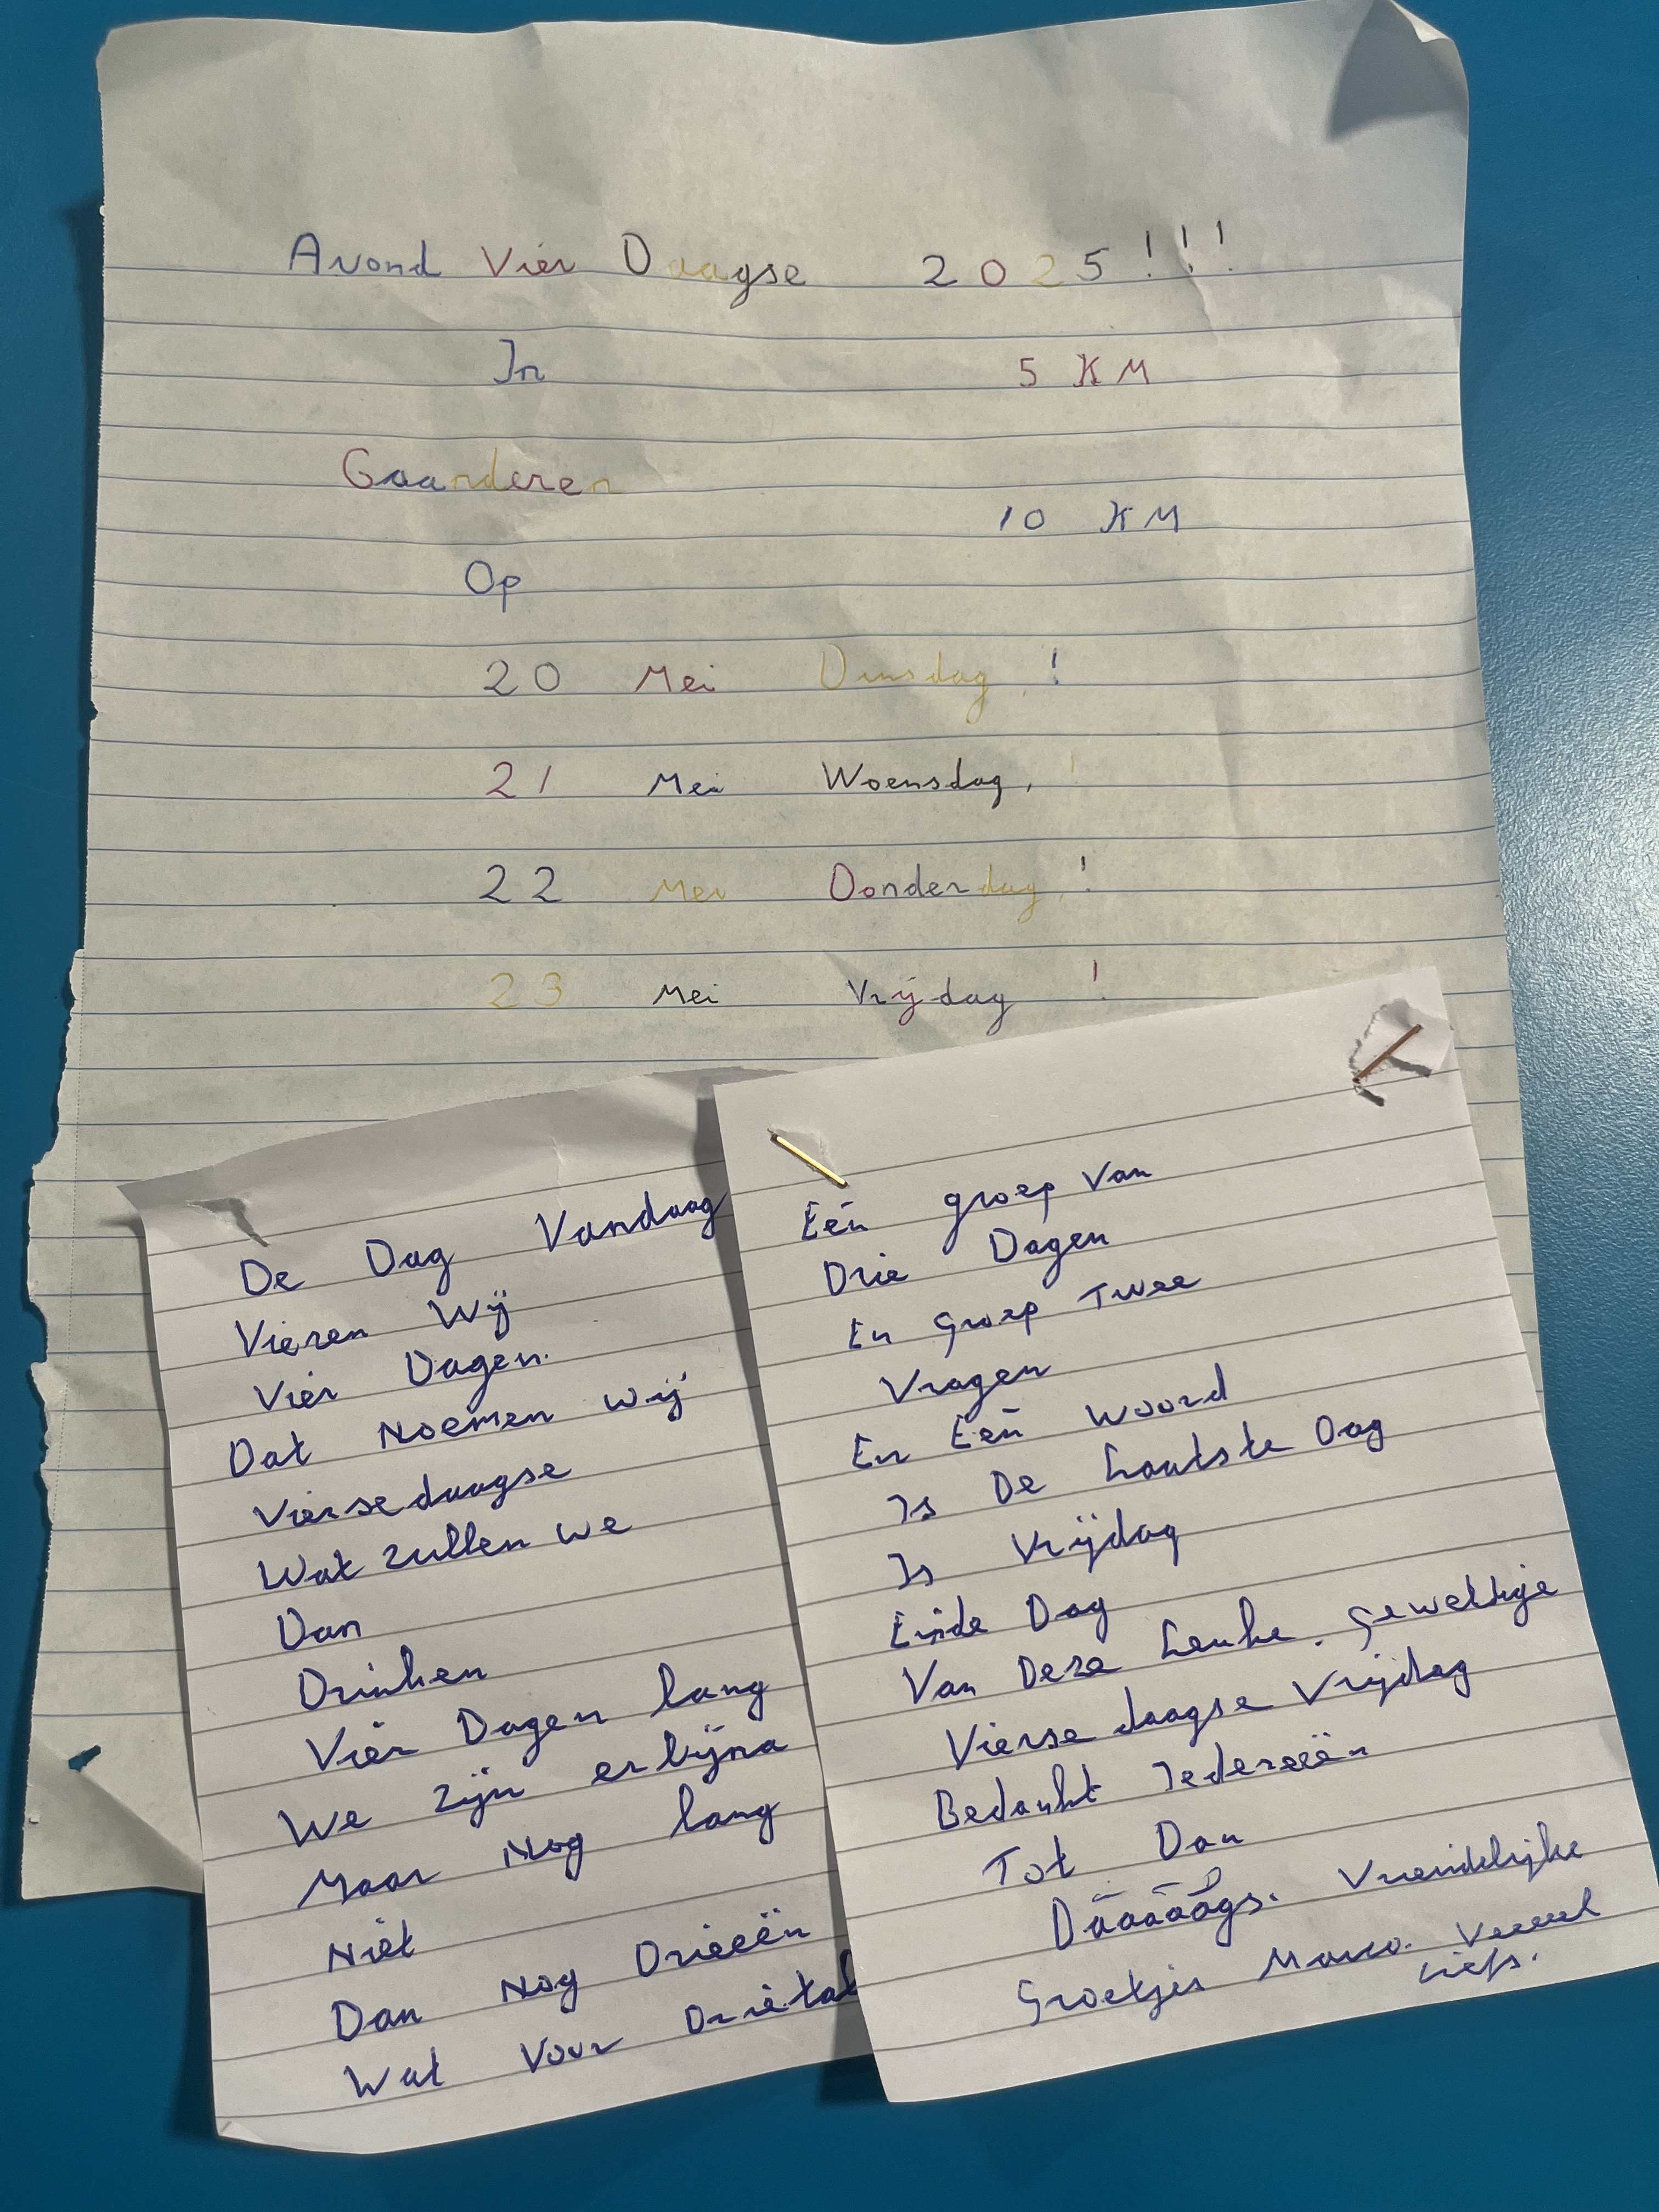 Avond Vier Daagse 2025!!!
In 5 KM
Gaanderen
10 KM
Op
20 Mei Dinsdag, !
21 Mei Woensdag, !
22 Mei Donderdag, !
23 Mei Vrijdag !
De Dag Vandaag
Vieren Wij
Vier Dagen.
Dat Noemen wij
Viersedaagse
Wat zullen we
Dan
Drinken
Vier Dagen lang
We zijn er bijna
Maar Nog lang
Niet
Dan Nog Drieeën
Wat Voor Drietal
Eén groep Van
Drie Dagen
En groep Twee
Vragen
En Eén woord
Is De Laatste Dag
Is Vrijdag
Einde Dag
Van Deze Leuke. Geweldige
Viersedaagse Vrijdag
Bedankt Iedereeën
Tot Dan
Daaaaags. Vriendelijke
Groetjes Marco. Veeeel
Liefs.